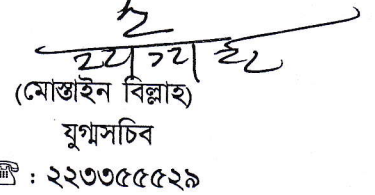 (মোস্তাইন বিল্লাহ)
যুগ্মসচিব
☎ : ২২৩৩৫৫৫২৯